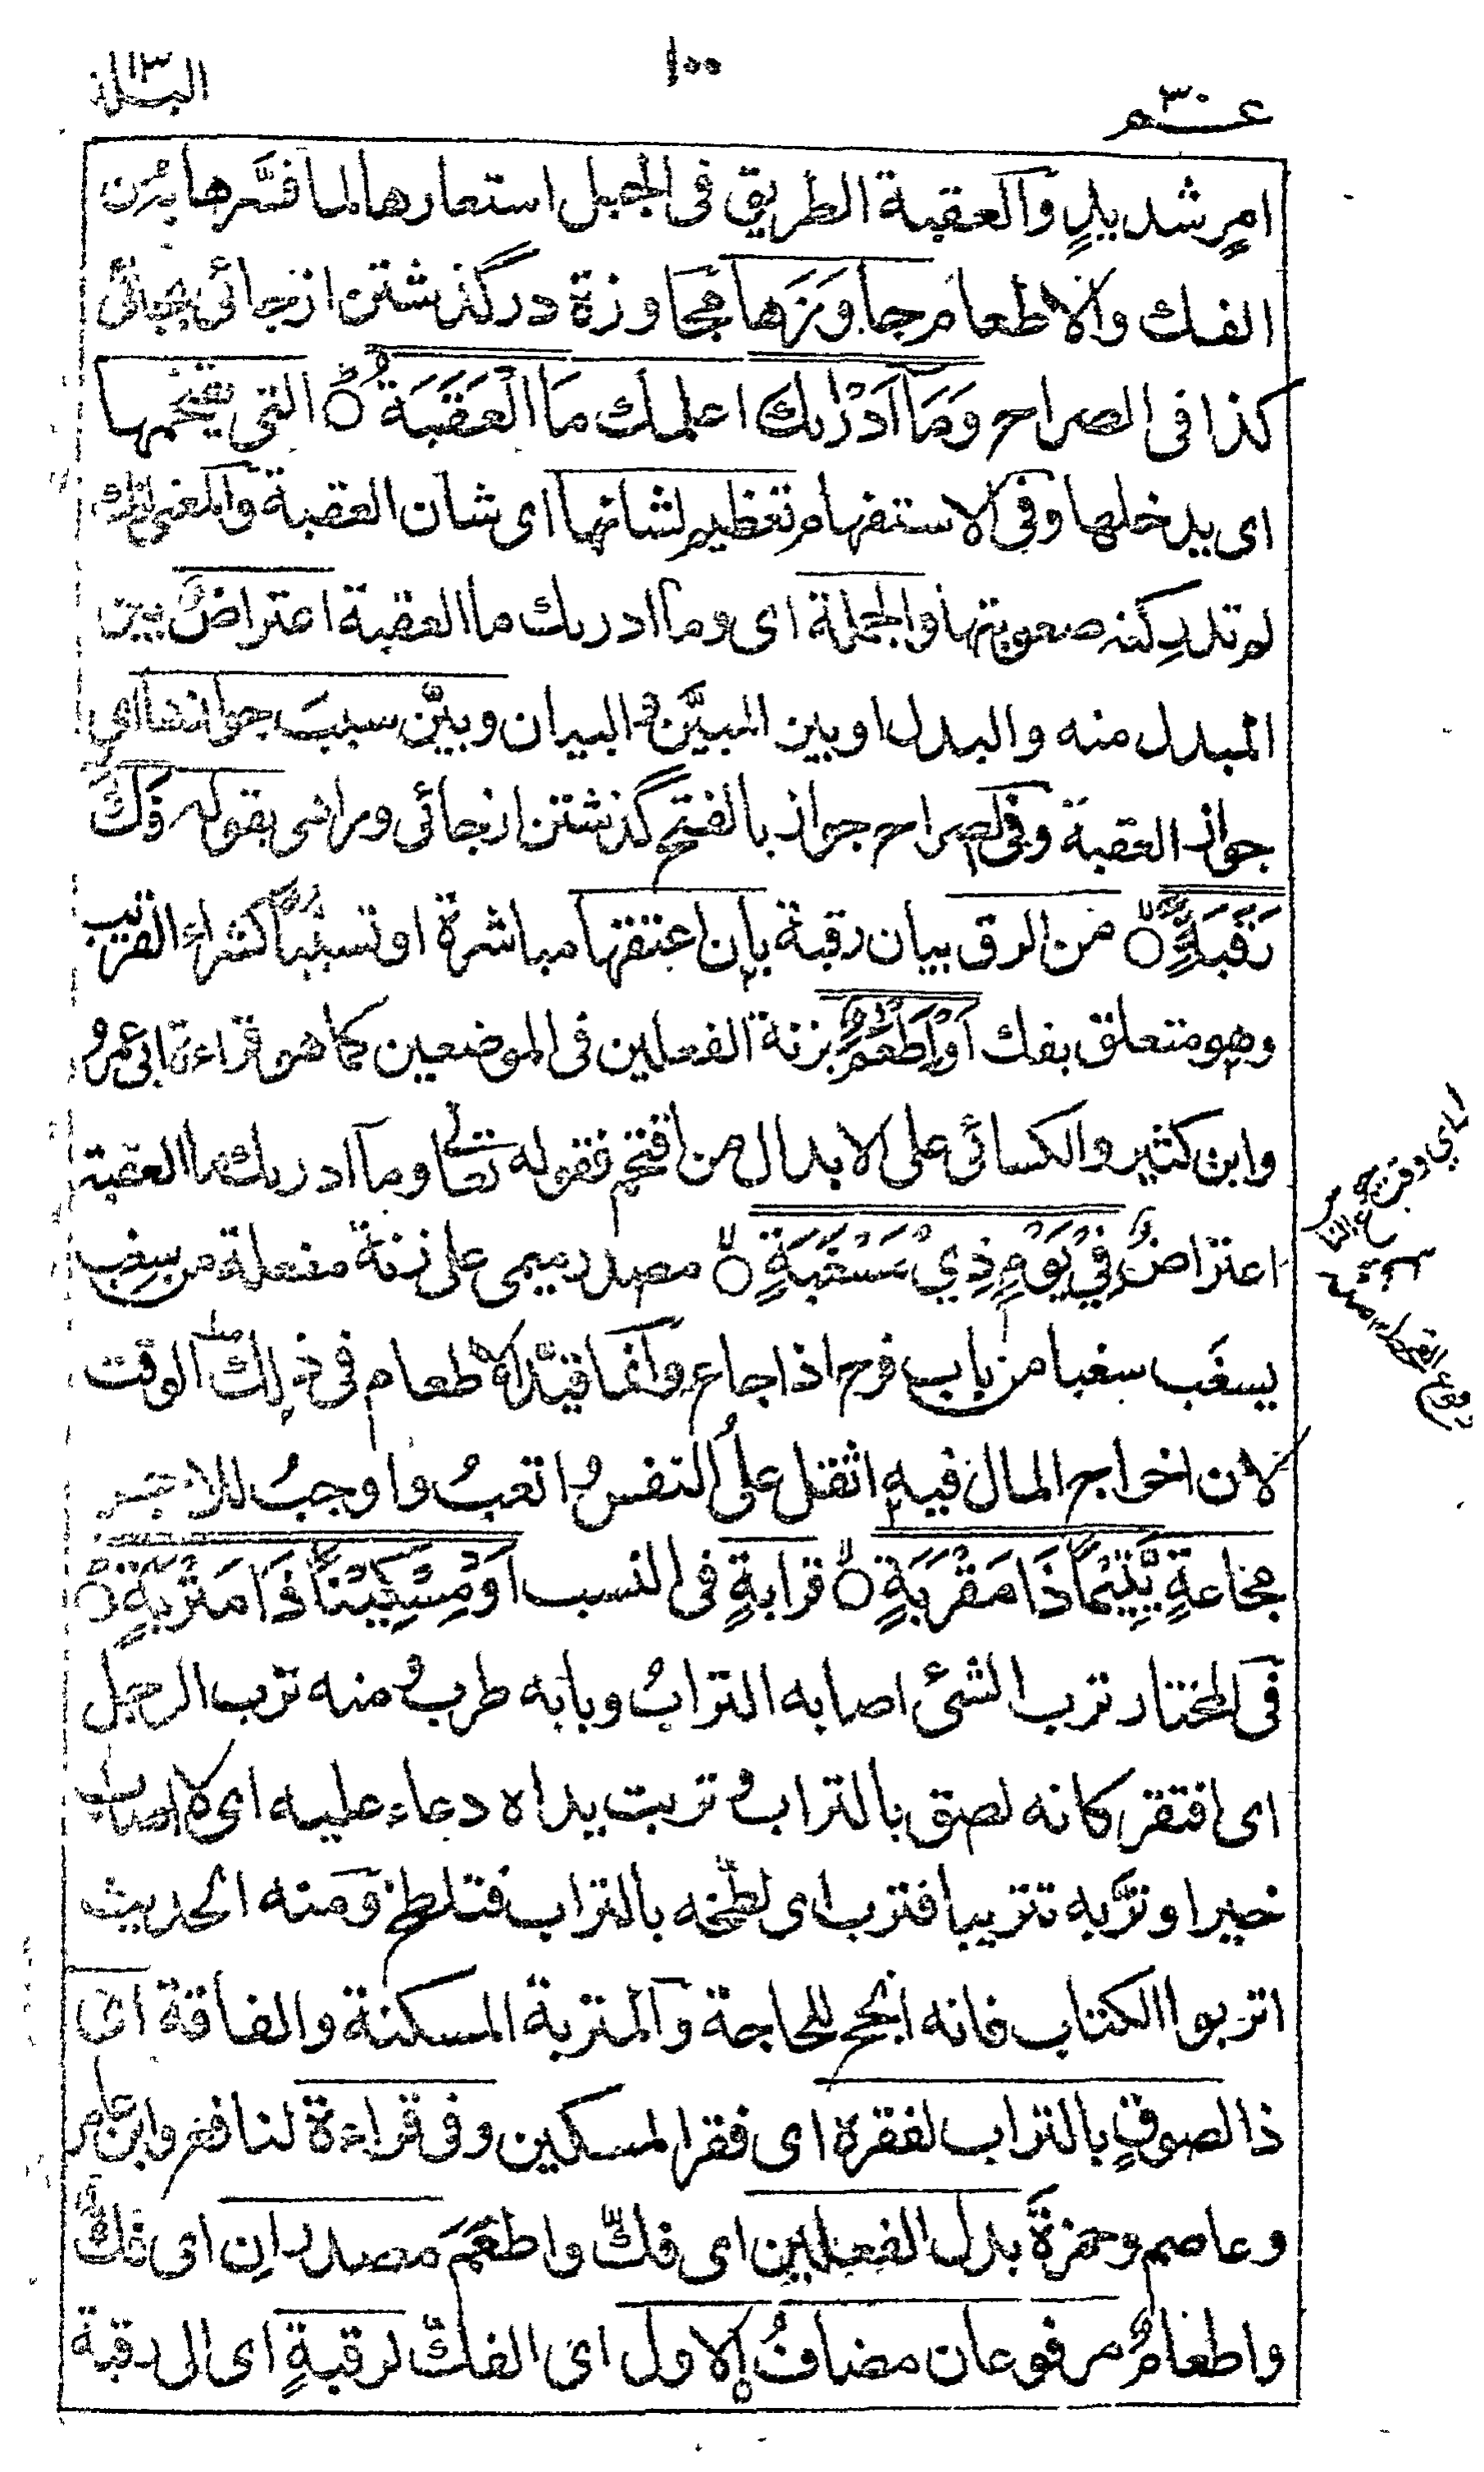 عـ٣٠ـم
١٠٠
البلد
امرٍ شديدٍ والعقبة الطريق فى الجبل استعارها لما فسَّرها به من
الفك والاطعام جاوَزَها مجاوزة درگذشتن از جائى بجائى
كذا فى الصراح وَمَآ اَدْرٰىكَ اعلمك مَا الْعَقَبَةُ ○ التى يقتحمها
اى يدخلها وفى الاستفهام تعظيم لشانها اى شان العقبة والمعنى انك
لم تدرِ كنه صعوبتها والجملة اى وما ادريك ما العقبة اعتراضٌ بين
المبدل منه والبدل او بين المبيَّن والبيان وبيَّن سببَ جوازها اى
جواز العقبة وفى الصراح جواز بالفتح گذشتن از جائى ورا ضى بقوله فَكَّ
رَقَبَةٍ ○ من الرق بيان رقبة بان اعتقها مباشرة او تسببًا كشراء القريب
وهو متعلق بفك اَوْ اَطْعَمَ بزنة الفعلين فى الموضعين كما هو قراءة ابى عمرو
وابن كثير والكسائى على الابدال من اقتحم فقوله تعالى وما آدريك ما العقبة
اعتراضٌ فِيْ يَوْمٍ ذِيْ مَسْغَبَةٍ ○ مصدر ميمى على زنة مفعلة من سغِب
يسغَب سغبا من باب فرح اذا جاع وانما قيّد الاطعام فى ذلك الوقت
لان اخراج المال فيه اثقل على النفس واتعبُ واوجبُ للاجر
مجاعةٍ يَّتِيْمًا ذَا مَقْرَبَةٍ ○ قرابةٍ فى النسب اَوْ مِسْكِيْنًا ذَا مَتْرَبَةٍ ○
فى المختار ترب الشئ اصابه الترابُ وبابه طرب ومنه ترب الرجل
اى افتقر كانه لصق بالتراب وتربت يداه دعاء عليه اى لا اصاب
خيرا وترَّبه تتريبا فترب اى لطَّخه بالتراب فتلطخ ومنه الحديث
اتربوا الكتاب فانه انجح للحاجة والمتربة المسكنة والفاقة اى
ذا لصوقٍ بالتراب لفقره اى فقر المسكين وفى قراءة لنافع وابن عامر
وعاصم وحمزة بدل الفعلين اى فكَّ واطعَمَ مصدرانِ اى فكٌّ
واطعامٌ مرفوعان مضافٌ الاول اى الفكّ لرقبةٍ اى الى رقبة